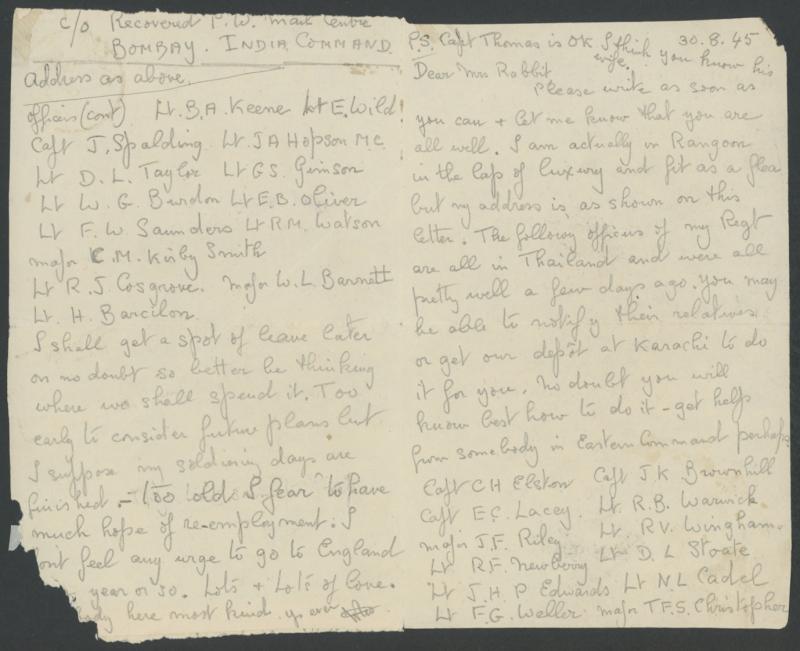 P.S. Capt Thomas is OK I think you know his
wife.
30.8.45
Dear Mrs Rabbit
Please write as soon as
you can + let me know that you are
all well. I am actually in Rangoon
in the lap of luxury and fit as a flea
but my address is as shown on this
letter. The following officers of my Regt
are all in Thailand and were all
pretty well a few days ago. You may
be able to notify their relatives
or get our depôt at Karachi to do
it for you. No doubt you will
know best how to do it - get help
from somebody in Eastern Command perhaps
Capt C H Elston Capt J K Brownhill
Capt E.C. Lacey. Lt. R.B. Warwick
Major J.F. Riley Lt. R.V. Wingham.
Lt R.F. Newberry Lt D. L Stoate
Lt J.H.P Edwards Lt N.L Cadel
Lt F.G. Weller Major T.F.S. Christopher
c/o Recovered P.W. Mail Centre
BOMBAY. INDIA COMMAND
Address as above.
Officers (cont) Lt. B.A. Keene Lt E. Wild
Capt J. Spalding Lt. J A Hopson M.C.
Lt D. L. Taylor Lt G.S. Gimson
Lt W. G. Burdon Lt E.B. Oliver
Lt F. W Saunders Lt R.M. Watson
Major C.M. Kirby Smith
Lt R. J. Cosgrove. Major W. L. Barnett
Lt. H. Barcilon.
I shall get a spot of leave later
on no doubt so better be thinking
where we shall spend it. Too
early to consider future plans but
I suppose my soldiering days are
finished. - Too old I fear to have
much hope of re-employment. I
ont feel any urge to go to England
year or so. Lots + Lots of love.
body here most kind. yr ever